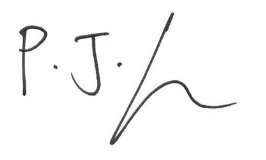 P. J.